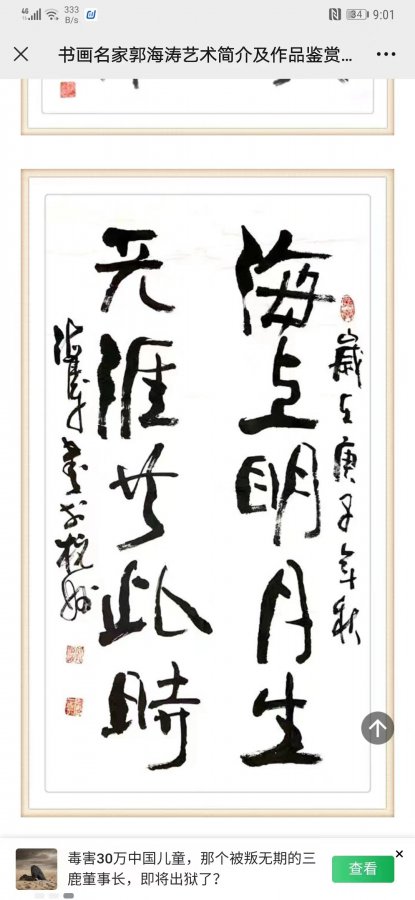 4G 333 B/s 34 9:01
书画名家郭海涛艺术简介及作品鉴赏...
歲在庚子年秋
海上明月生
天涯共此時
海涛書於杭州
毒害30万中国儿童，那个被叛无期的三
鹿董事长，即将出狱了？
查看